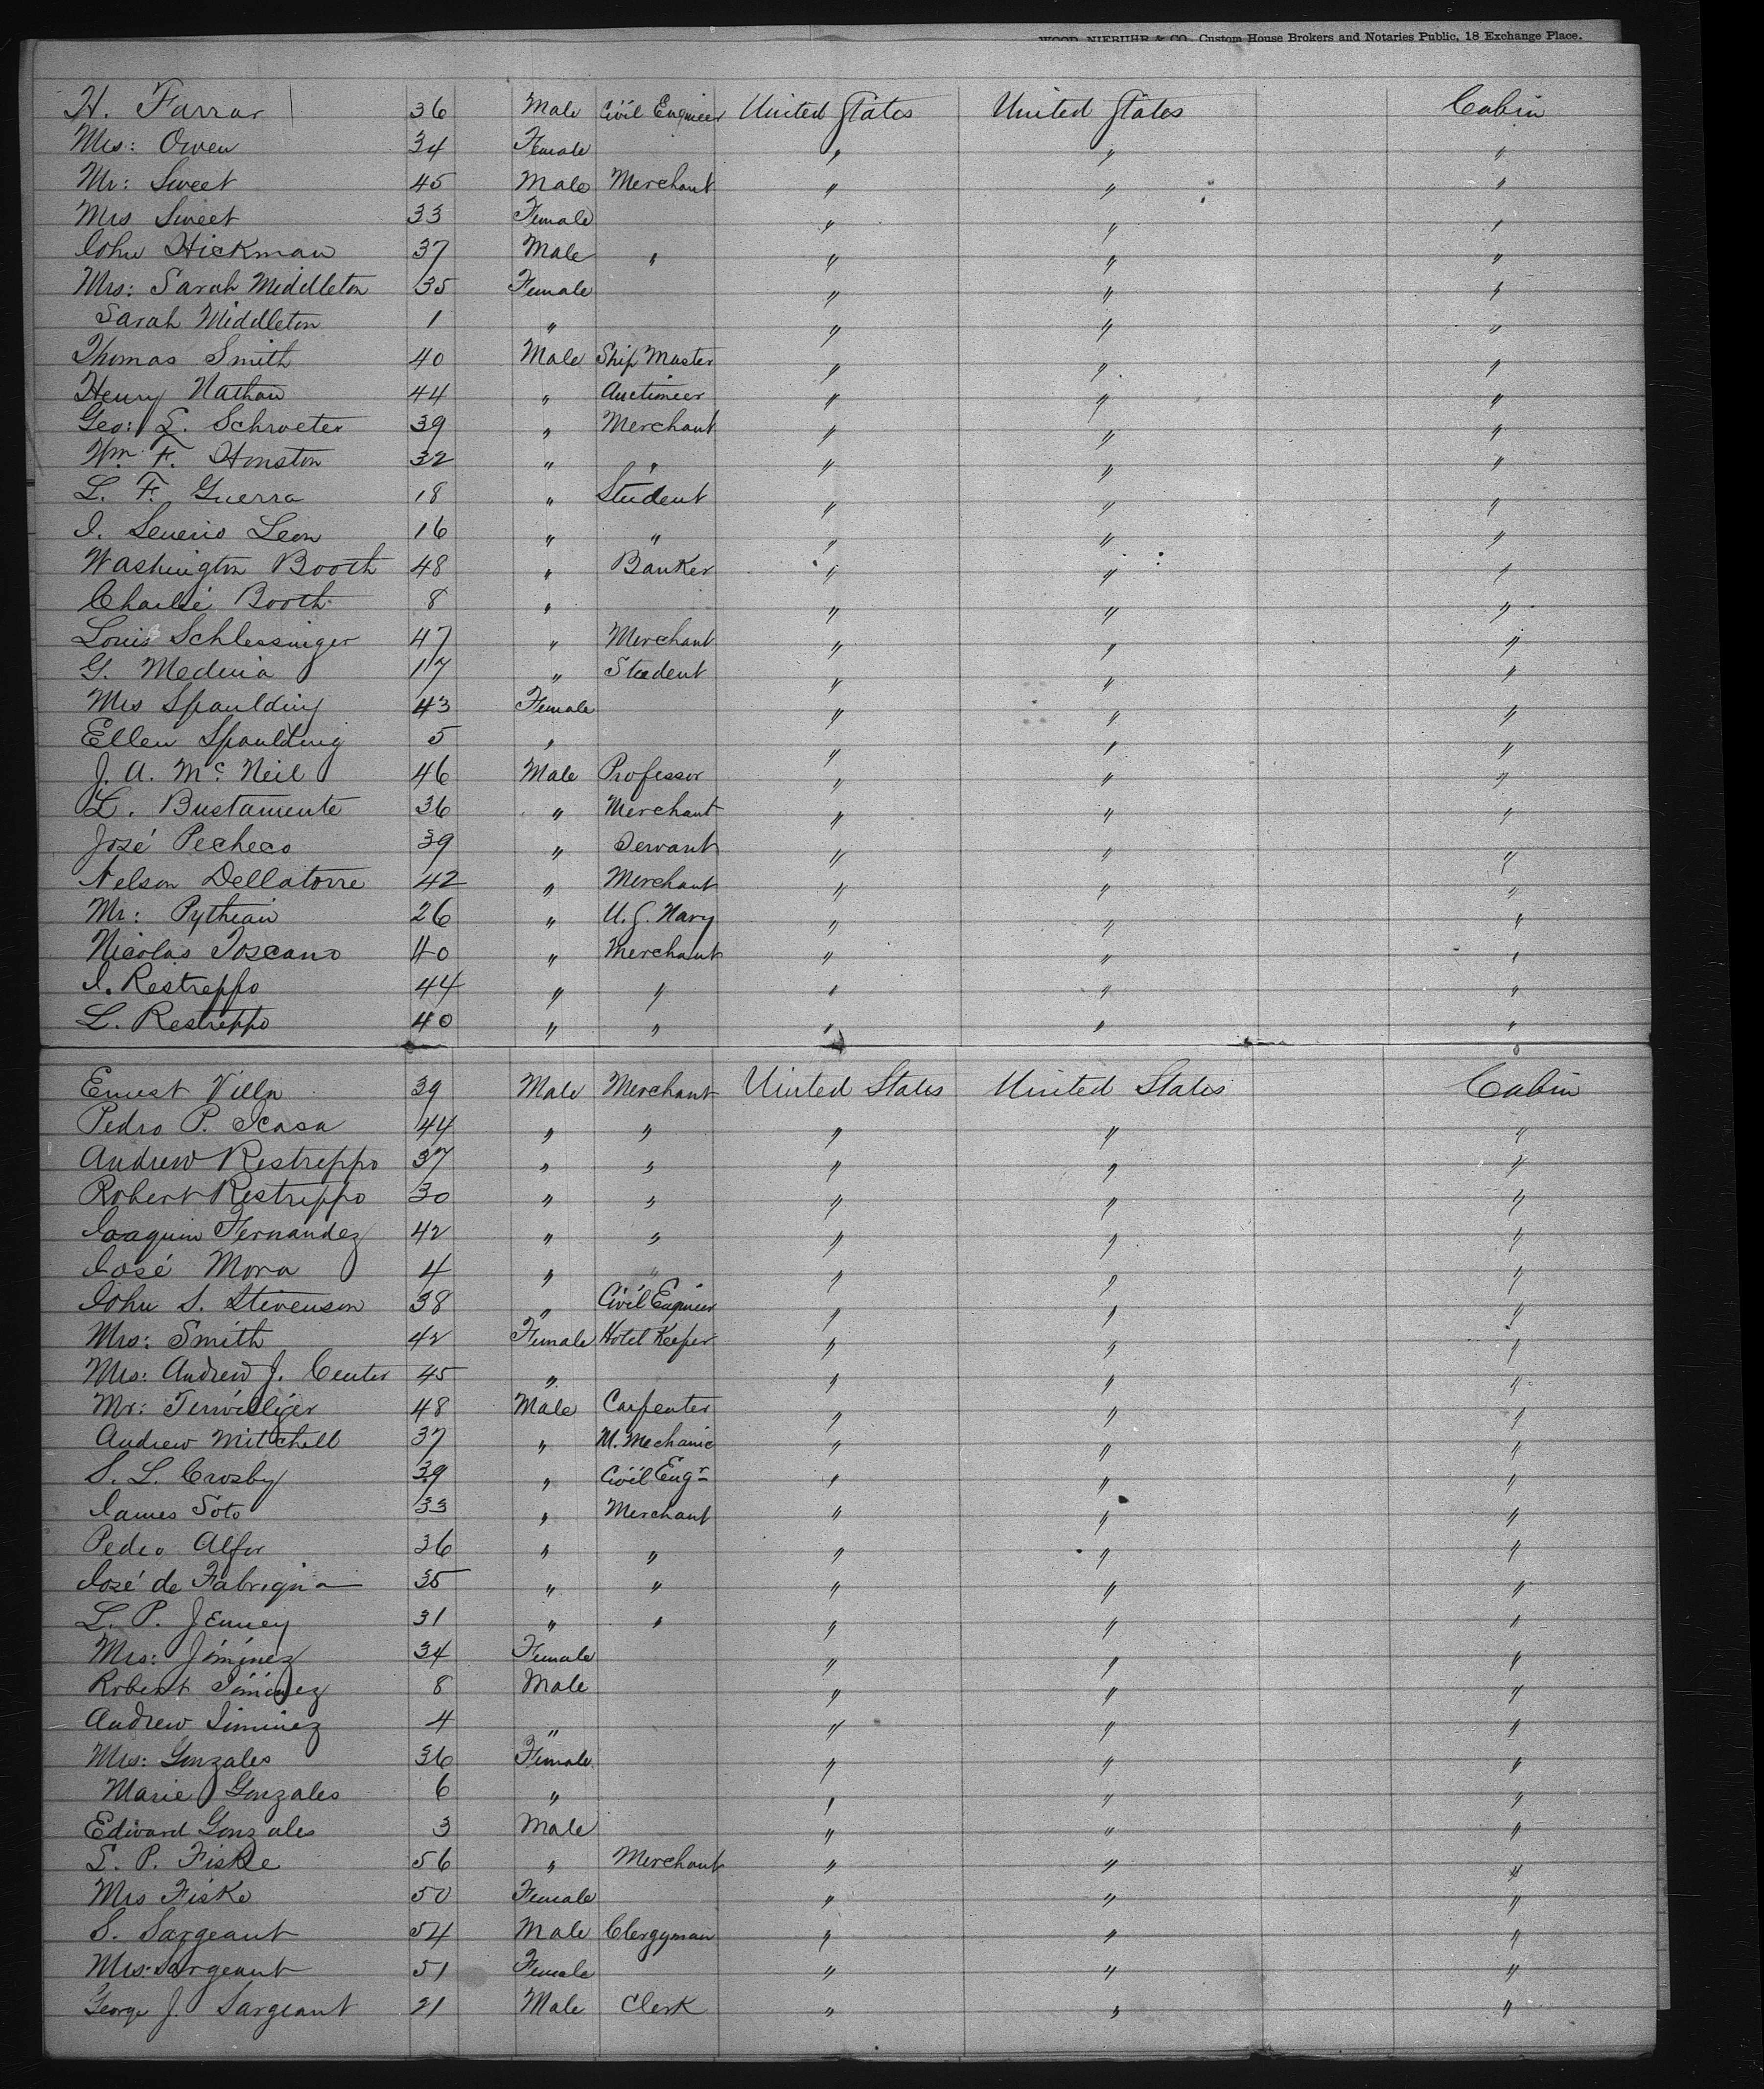 WOOD, NIEBUHR & CO. Custom House Brokers and Notaries Public, 18 Exchange Place.
H. Farrar 36 Male Civil Engineer United States United States Cabin
Mrs: Owen 34 Female " " "
Mr: Sweet 45 Male Merchant " " "
Mrs Sweet 33 Female " " "
John Hickman 37 Male " " " "
Mrs: Sarah Middleton 35 Female " " "
Sarah Middleton 1 " " " "
Thomas Smith 40 Male Ship Master " " "
Henry Nathan 44 " Auctioneer " " "
Geo: L. Schroeter 39 " Merchant " " "
Wm. F. Honston 32 " " " " "
L. F. Guerra 18 " Student " " "
I. Severio Leon 16 " " " " "
Washington Booth 48 " Banker " " "
Charlie Booth 8 " " " "
Louis Schlessinger 47 " Merchant " " "
G. Medina 17 " Student " " "
Mrs Spaulding 43 Female " " "
Ellen Spaulding 5 " " " "
J. A. McNeil 46 Male Professor " " "
L. Bustamente 36 " Merchant " " "
José Pecheco 39 " Servant " " "
Nelson Dellatorre 42 " Merchant " " "
Mr: Pythian 26 " U.S. Navy " " "
Nicolas Toscano 40 " Merchant " " "
I. Restreppo 44 " " " " "
L. Restreppo 40 " " " " "
Ernest Villa 39 Male Merchant United States United States Cabin
Pedro P. Icasa 44 " " " " "
Andrew Restreppo 37 " " " " "
Robert Restreppo 30 " " " " "
Joaquin Fernandez 42 " " " " "
José Mora 4 " " " "
John S. Stevenson 38 " Civil Engineer " " "
Mrs: Smith 42 Female Hotel Keeper " " "
Mrs: Andrew J. Center 45 " " " "
Mr: Terwilliger 48 Male Carpenter " " "
Andrew Mitchell 37 " M. Mechanic " " "
S. L. Crosby 39 " Civil Engr " " "
James Soto 33 " Merchant " " "
Pedro Alfor 36 " " " " "
José de Fabriqua 35 " " " " "
L. P. Jenney 31 " " " " "
Mrs: Jiminez 34 Female " " "
Robert Jiminez 8 Male " " "
Andrew Jiminez 4 " " " "
Mrs: Gonzales 36 Female " " "
Marie Gonzales 6 " " " "
Edward Gonzales 3 Male " " "
E. P. Fiske 56 " Merchant " " "
Mrs Fiske 50 Female " " "
S. Sargeant 54 Male Clergyman " " "
Mrs: Sargeant 51 Female " " "
George J. Sargeant 21 Male Clerk " " "